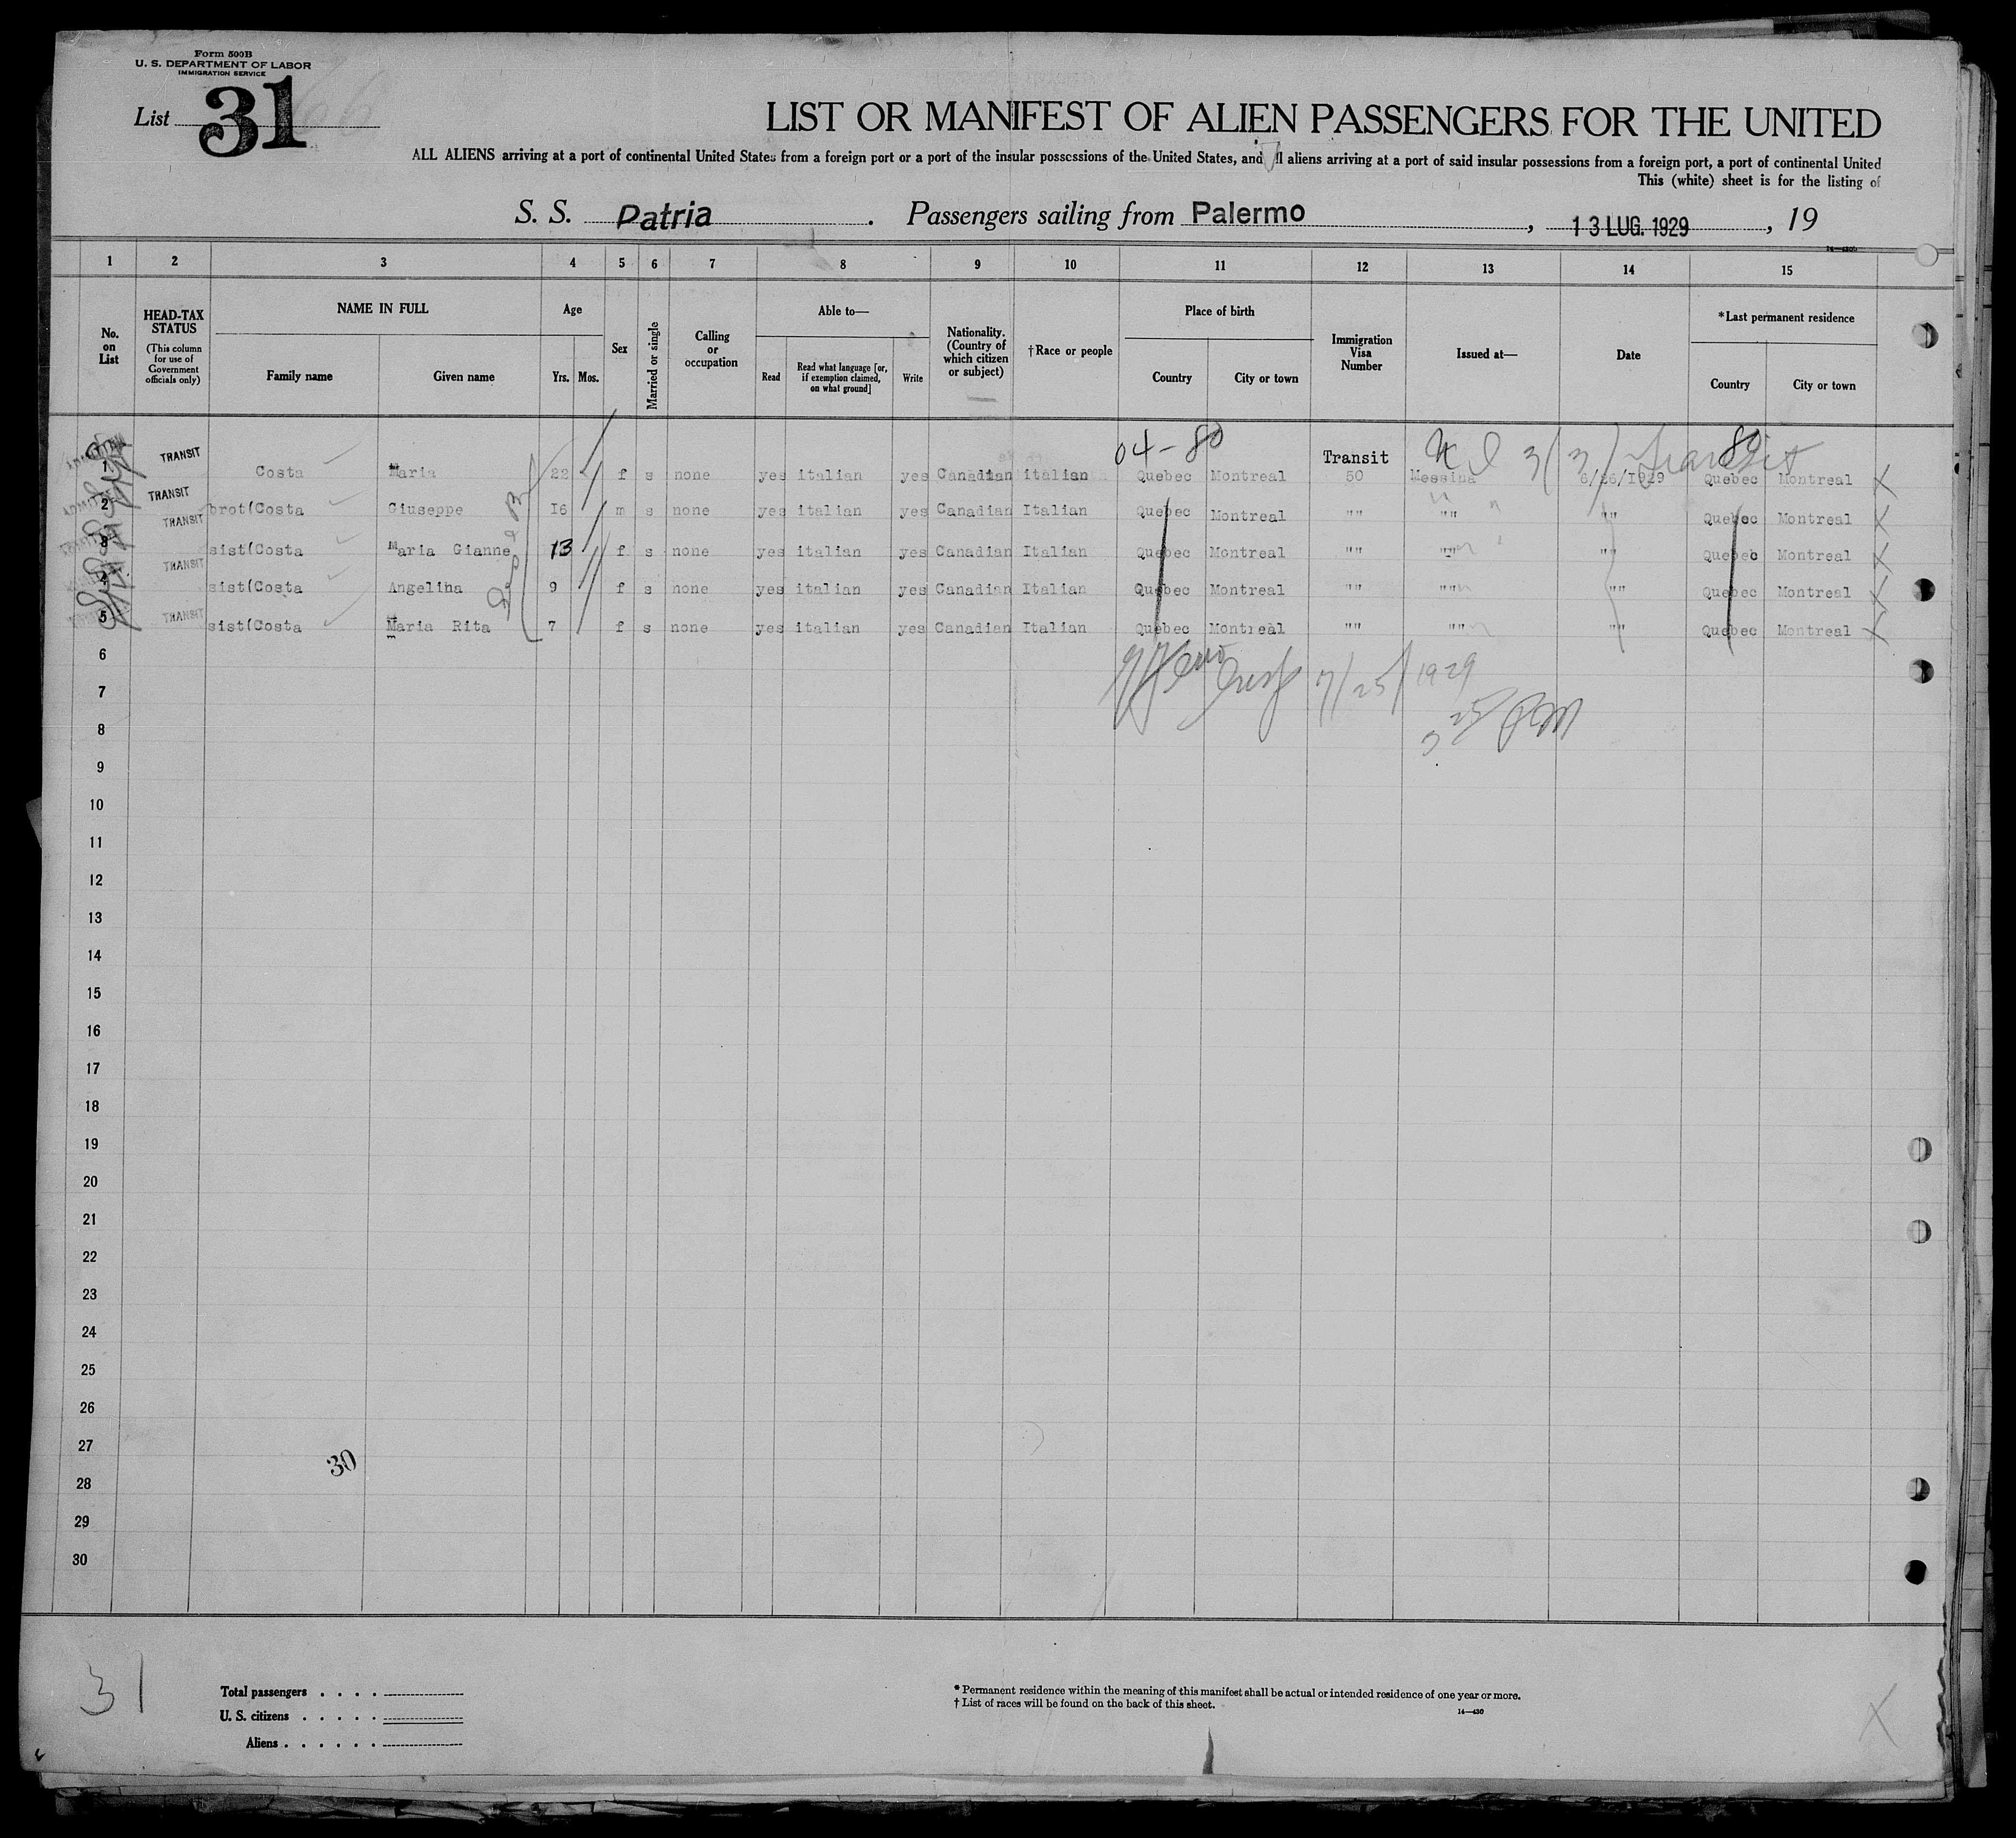 Form 500B
U. S. DEPARTMENT OF LABOR
IMMIGRATION SERVICE
List 31
LIST OR MANIFEST OF ALIEN PASSENGERS FOR THE UNITED
ALL ALIENS arriving at a port of continental United States from a foreign port or a port of the insular possessions of the United States, and all aliens arriving at a port of said insular possessions from a foreign port, a port of continental United
This (white) sheet is for the listing of
S. S. Patria . Passengers sailing from Palermo , 13 LUG. 1929 , 19
14—430b
1 2 3 4 5 6 7 8 9 10 11 12 13 14 15
No. on List
HEAD-TAX STATUS (This column for use of Government officials only)
NAME IN FULL
Family name
Given name
Age
Yrs.
Mos.
Sex
Married or single
Calling or occupation
Able to—
Read
Read what language [or, if exemption claimed, on what ground]
Write
Nationality. (Country of which citizen or subject)
†Race or people
Place of birth
Country
City or town
Immigration Visa Number
Issued at—
Date
*Last permanent residence
Country
City or town
04-80
80
Transit
Transit
1 TRANSIT Costa Maria 22 f s none yes italian yes Canadian italian Quebec Montreal 50 Messina 6/26/I929 Quebec Montreal X
2 TRANSIT brot(Costa Giuseppe I6 m s none yes italian yes Canadian Italian Quebec Montreal "" "" "" Quebec Montreal X
3 TRANSIT sist(Costa Maria Gianne 13 f s none yes italian yes Canadian Italian Quebec Montreal "" "" "" Quebec Montreal X
4 TRANSIT sist(Costa Angelina 9 f s none yes italian yes Canadian Italian Quebec Montreal "" "" "" Quebec Montreal X
5 TRANSIT sist(Costa Maria Rita 7 f s none yes italian yes Canadian Italian Quebec Montreal "" "" "" Quebec Montreal X
6
7/25/1929
7
8
9
10
11
12
13
14
15
16
17
18
19
20
21
22
23
24
25
26
27
30
28
29
30
31
Total passengers . . . .
U. S. citizens . . . . .
Aliens . . . . . .
* Permanent residence within the meaning of this manifest shall be actual or intended residence of one year or more.
† List of races will be found on the back of this sheet.
14—430
X